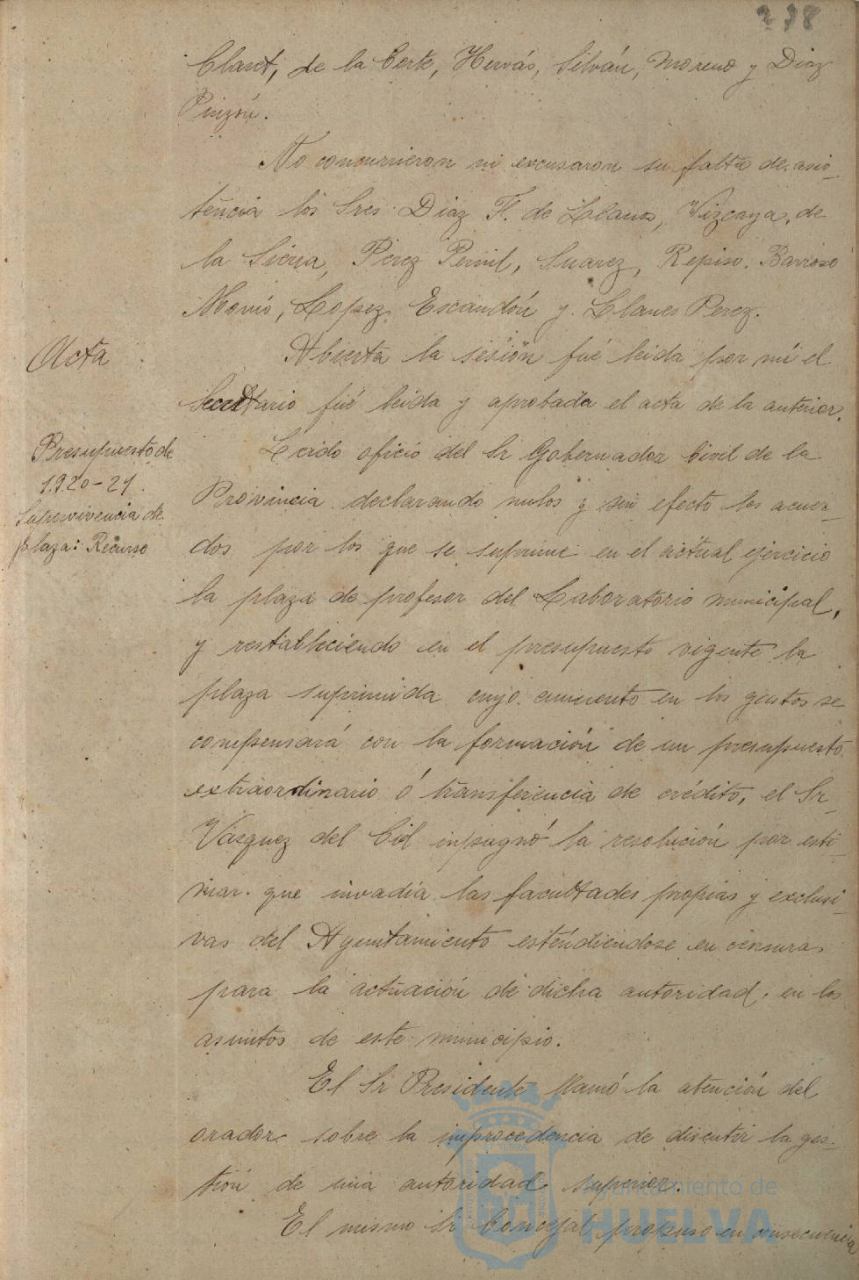 238
Claret, de la Corte, Hervás, Silván, Moreno y Diaz
Pinzón.
No concurrieron ni excusaron su falta de asis-
tencia los Sres. Diaz F. de Llanos, Vizcaya, de
la Sierra, Perez Pernil, Suarez, Repiso, Barroso
Lopez, Escandón y Llanes Perez.
Acta
Abierta la sesión fué leida por mi el
Secretario fué leida y aprobada el acta de la anterior.
Presupuesto de
1920-21.
Supervivencia de
plaza: Recurso
Leido oficio del Sr Gobernador Civil de la
Provincia declarando nulos y sin efecto los acuer-
dos por los que se suprime en el actual ejercicio
la plaza de profesor del Laboratorio municipal,
y restableciendo en el presupuesto vigente la
plaza suprimida cuyo aumento en los gastos se
compensará con la formación de un presupuesto
extraordinario ó transferencia de crédito, el Sr
Vasquez del Cid impugnó la resolución por esti-
mar que invadia las facultades propias y exclusi-
vas del Ayuntamiento estendiendose en censuras
para la actuación de dicha autoridad en los
asuntos de este municipio.
El Sr Presidente llamó la atención del
orador sobre la improcedencia de discutir la ges-
tión de una autoridad superior.
El mismo Sr Concejal propuso en consecuencia
Ayuntamiento de
HUELVA